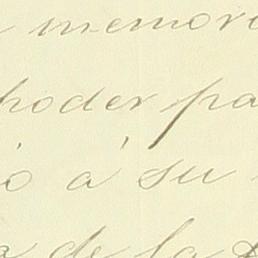 memor
poder pa
o á su
a de la